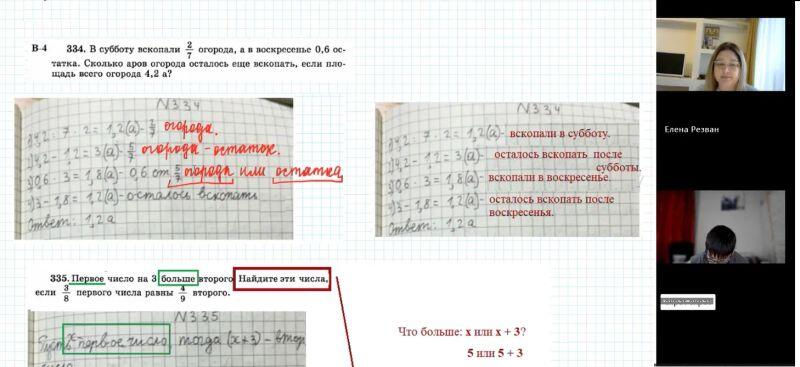 В-4 334. В субботу вскопали 2/7 огорода, а в воскресенье 0,6 ос-
татка. Сколько аров огорода осталось еще вскопать, если пло-
щадь всего огорода 4,2 а?
N334
1) 4,2 : 7 · 2 = 1,2 (а) - 2/7 огорода.
2) 4,2 - 1,2 = 3 (а) - 5/7 огорода - остаток.
3) 0,6 · 3 = 1,8 (а) - 0,6 от 5/7 огорода или остатка
4) 3 - 1,8 = 1,2 (а) - осталось вскопать
Ответ: 1,2 а
N334
1) 4,2 : 7 · 2 = 1,2 (а) - вскопали в субботу.
2) 4,2 - 1,2 = 3 (а) - осталось вскопать после
субботы.
3) 0,6 · 3 = 1,8 (а) - вскопали в воскресенье.
4) 3 - 1,8 = 1,2 (а) - осталось вскопать после
воскресенья.
Ответ: 1,2 а
335. Первое число на 3 больше второго. Найдите эти числа,
если 3/8 первого числа равны 4/9 второго.
N335
Пусть x первое число, тогда (x+3) - втор
Что больше: x или x + 3?
5 или 5 + 3
Елена Резван